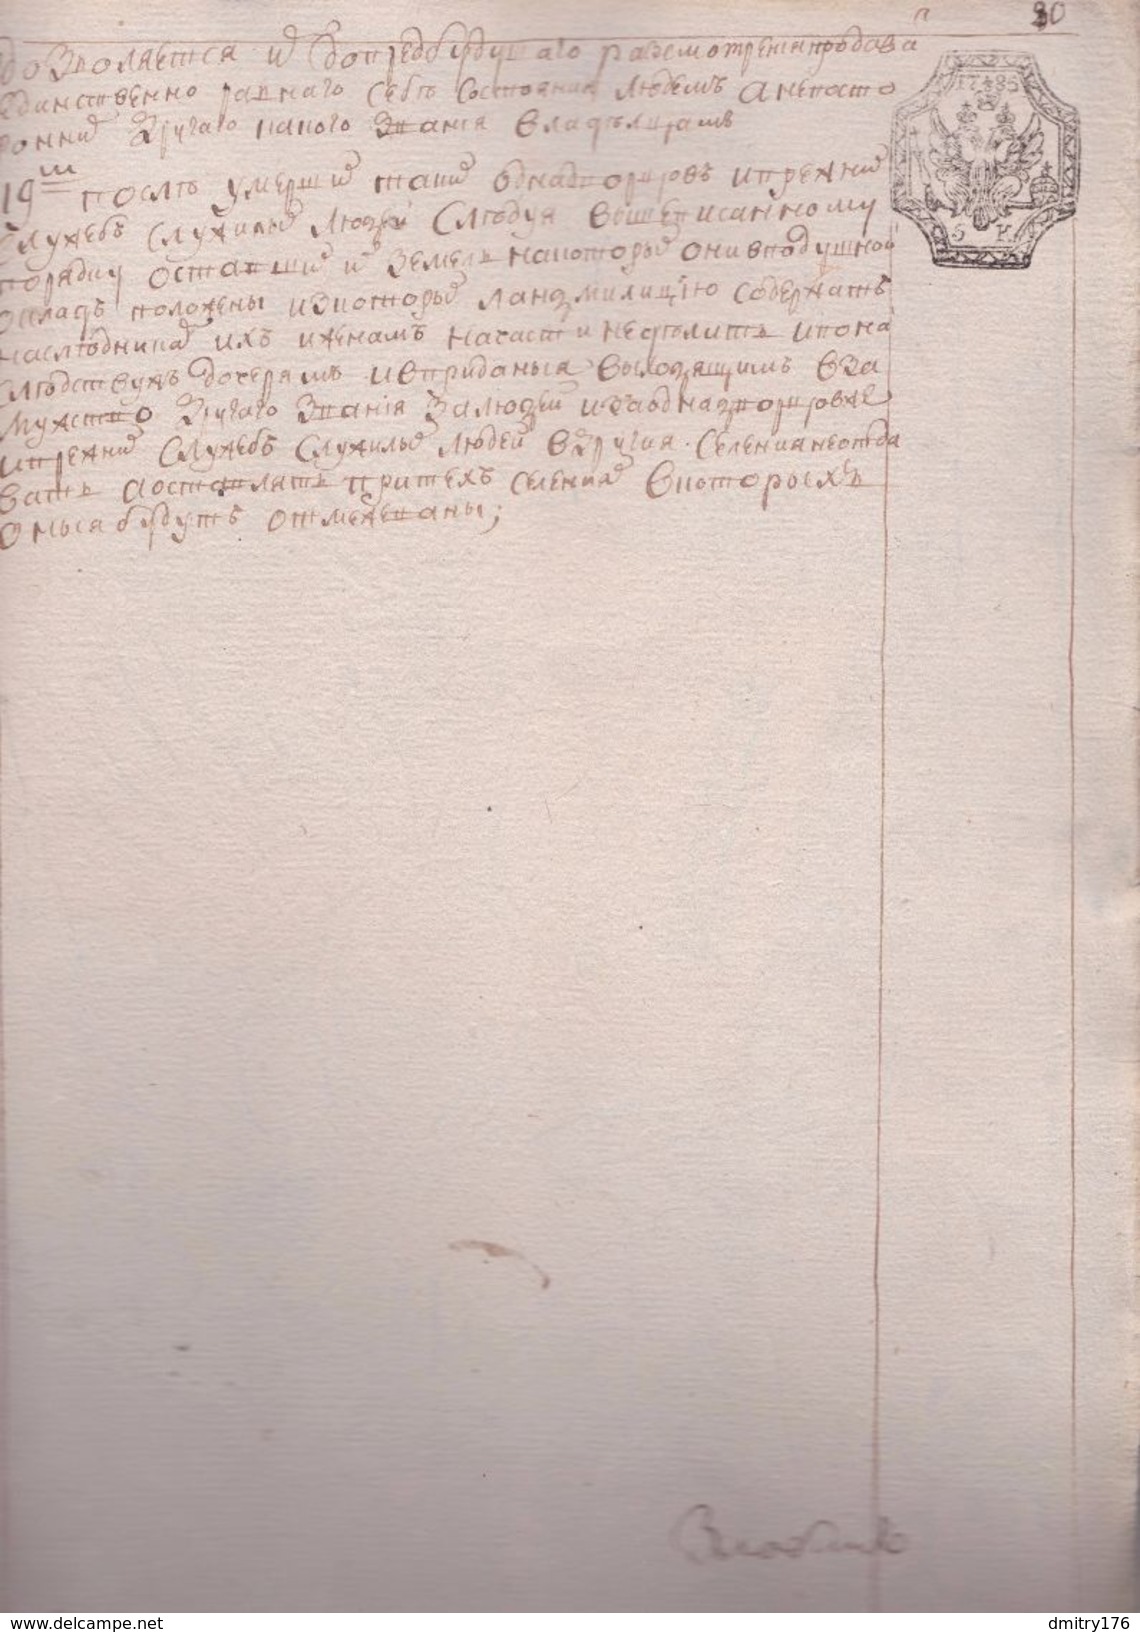 30
дозволяется и допредбудущаго разсмотрения продава
единственно равнаго себѣ состояния людемъ а непосто
ронним другаго какого звания владѣлцамъ
1748
5 К
19ш послѣ умершиѣ таких однадворцовъ и прежних
служебъ служилыѣ людей следуя вышеписанному
порядку оставшиѣ и земель на которые они в подушной
окладъ положены и с которыѣ ландмилицiю содержатъ
наследникамъ ихъ и женамъ на части не делить и по на
следствухъ дочерямъ и в приданыя выходящимъ в за
мужство другаго звания за людей и за однадворцовже
и прежних служебъ служилыѣ людей в другия селения не отда
вать а оставлять при техъ селенияѣ в которыхъ
оныя будутъ отмежеваны;
www.delcampe.net
dmitry176